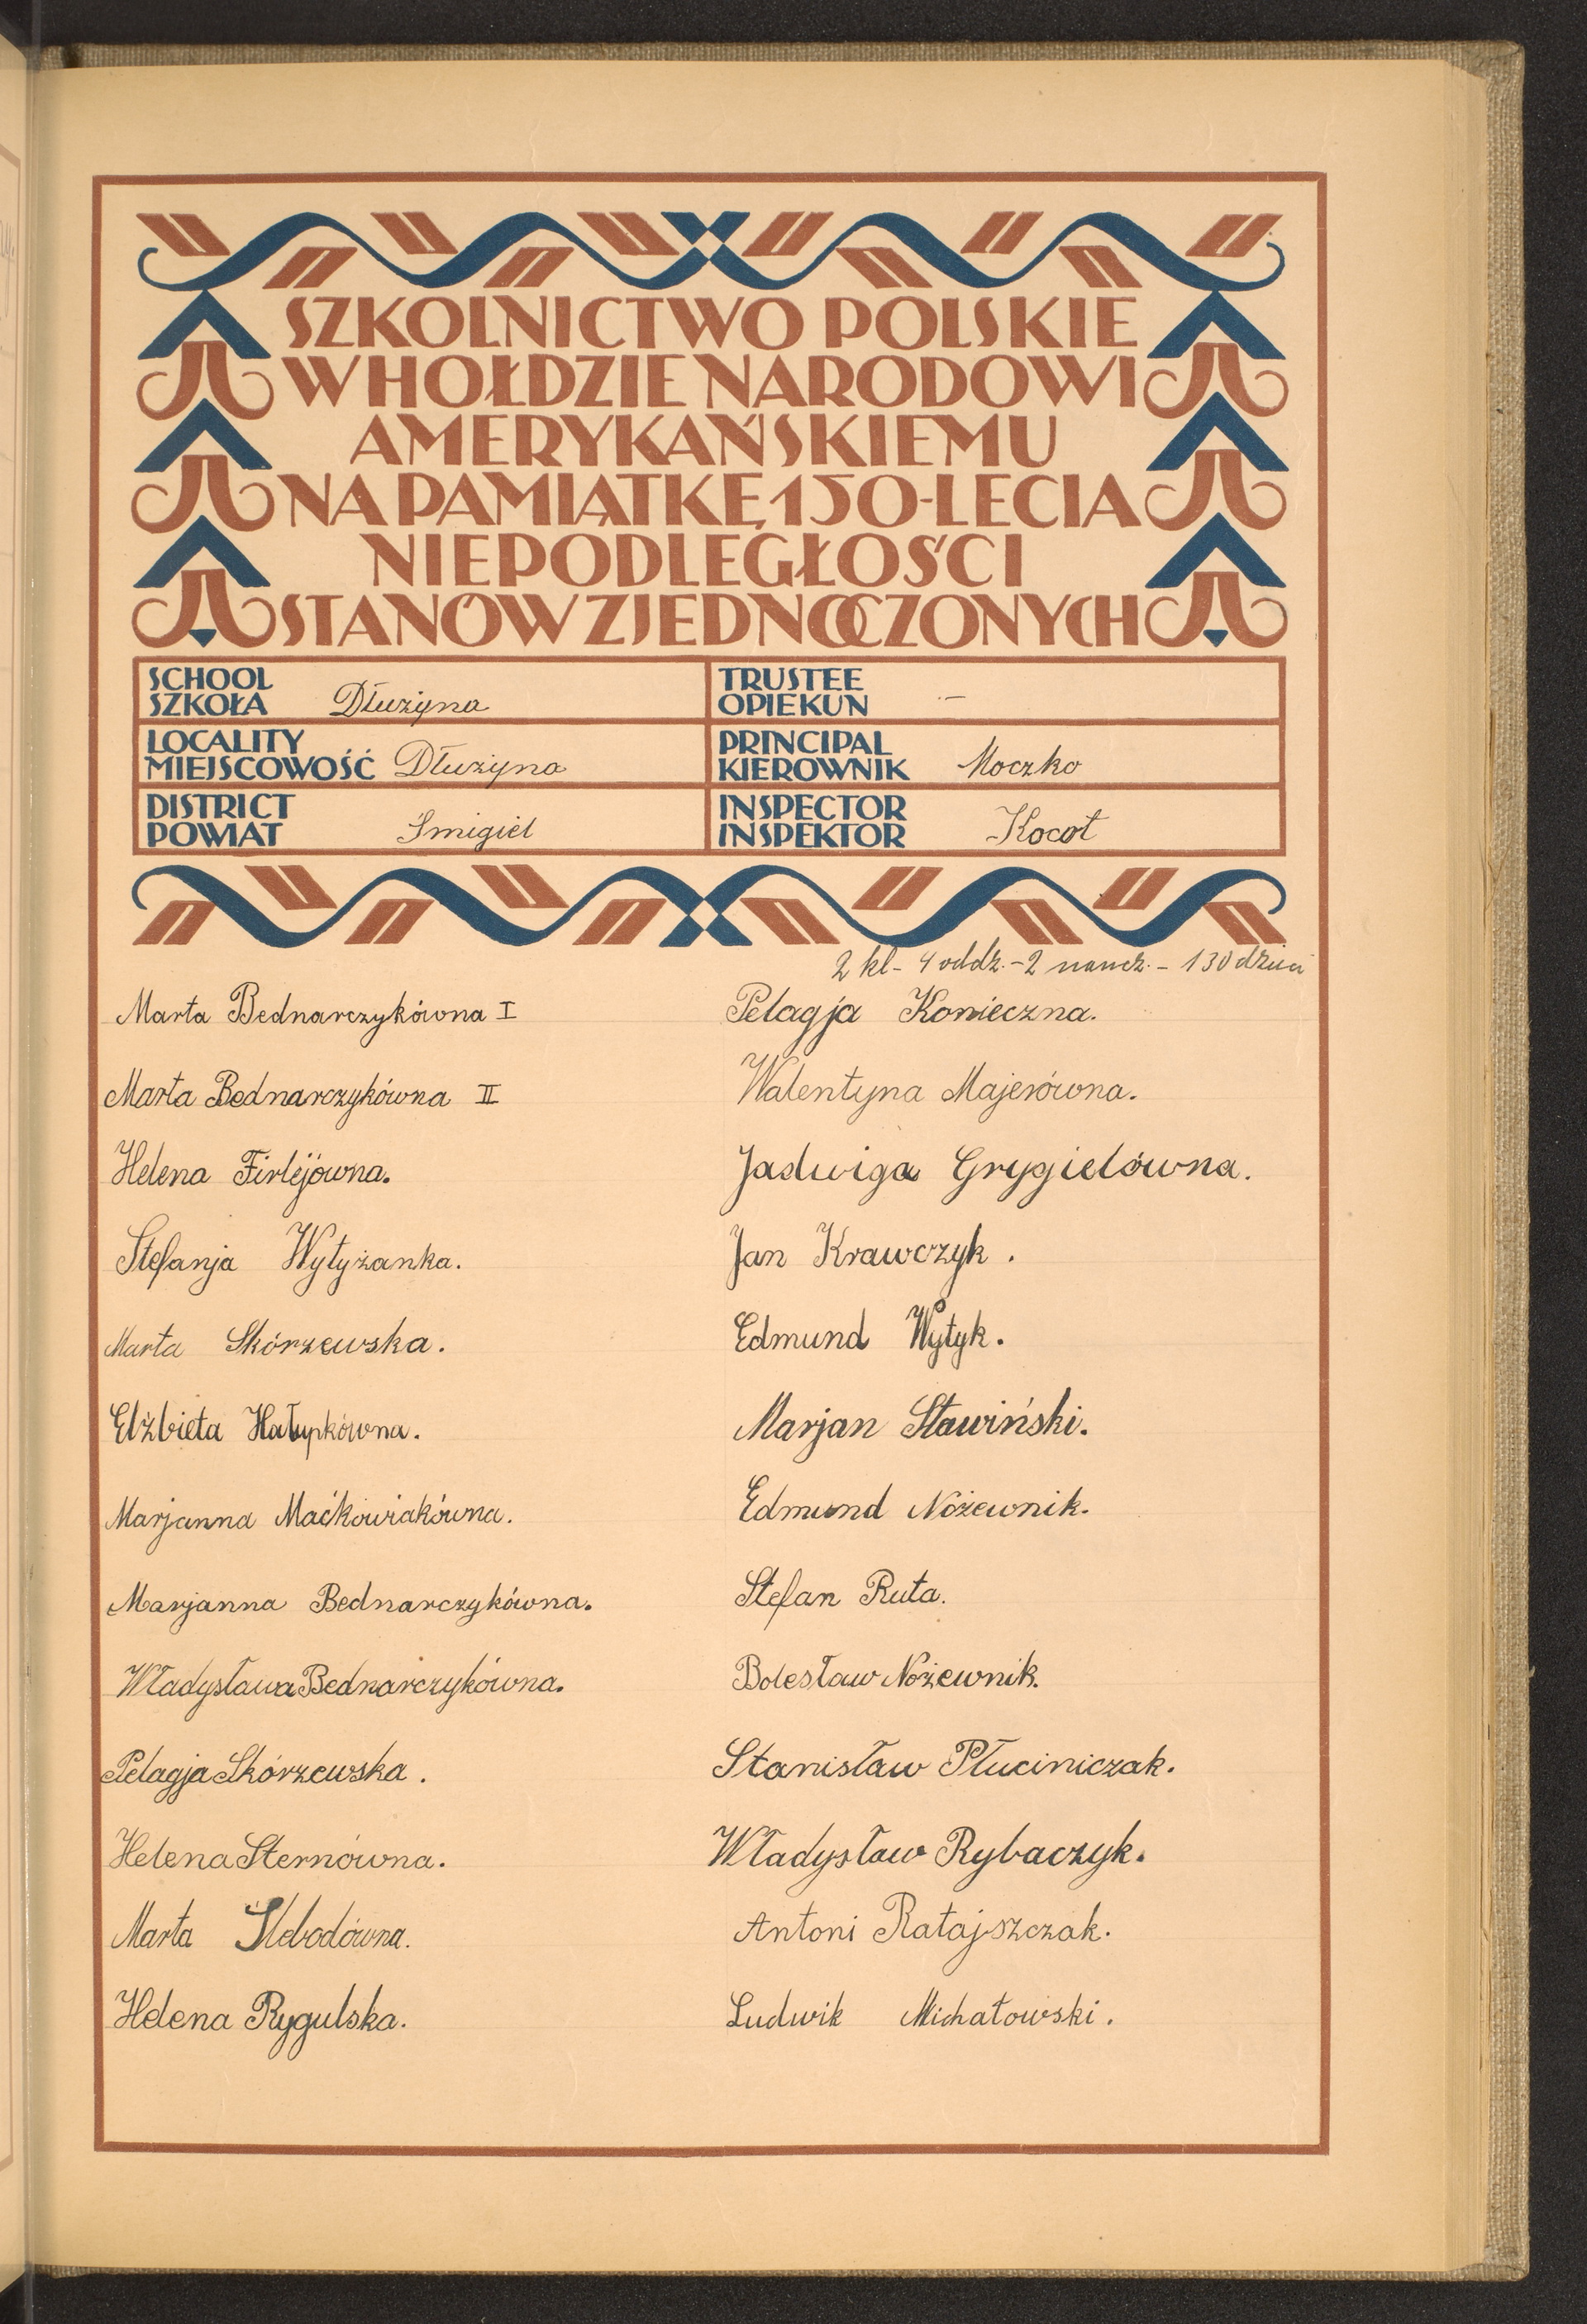 SZKOLNICTWO POLSKIE
W HOŁDZIE NARODOWI
AMERYKAŃSKIEMU
NA PAMIĄTKĘ 150-LECIA
NIEPODLEGŁOŚCI
STANÓW ZJEDNOCZONYCH
SCHOOL
SZKOŁA Dłużyna
TRUSTEE
OPIEKUN –
LOCALITY
MIEJSCOWOŚĆ Dłużyna
PRINCIPAL
KIEROWNIK Moczko
DISTRICT
POWIAT Smigiel
INSPECTOR
INSPEKTOR Kocot
2 kl - 4 oddz. - 2 naucz. - 130 dzieci
Marta Bednarczykówna I
Marta Bednarczykówna II
Helena Firlejówna.
Stefanja Wytyżanka.
Marta Skórzewska.
Elżbieta Hałupkówna.
Marjanna Maćkowiakówna.
Marjanna Bednarczykówna.
Władysława Bednarczykówna.
Pelagja Skórzewska.
Helena Sternówna.
Marta Ślebodówna.
Helena Rygulska.
Pelagja Konieczna.
Walentyna Majerówna.
Jadwiga Grygielówna.
Jan Krawczyk.
Edmund Wytyk.
Marjan Sławiński.
Edmund Nożewnik.
Stefan Ruta.
Bolesław Nożewnik.
Stanisław Płuciniczak.
Władysław Rybaczyk.
Antoni Ratajszczak.
Ludwik Michałowski.